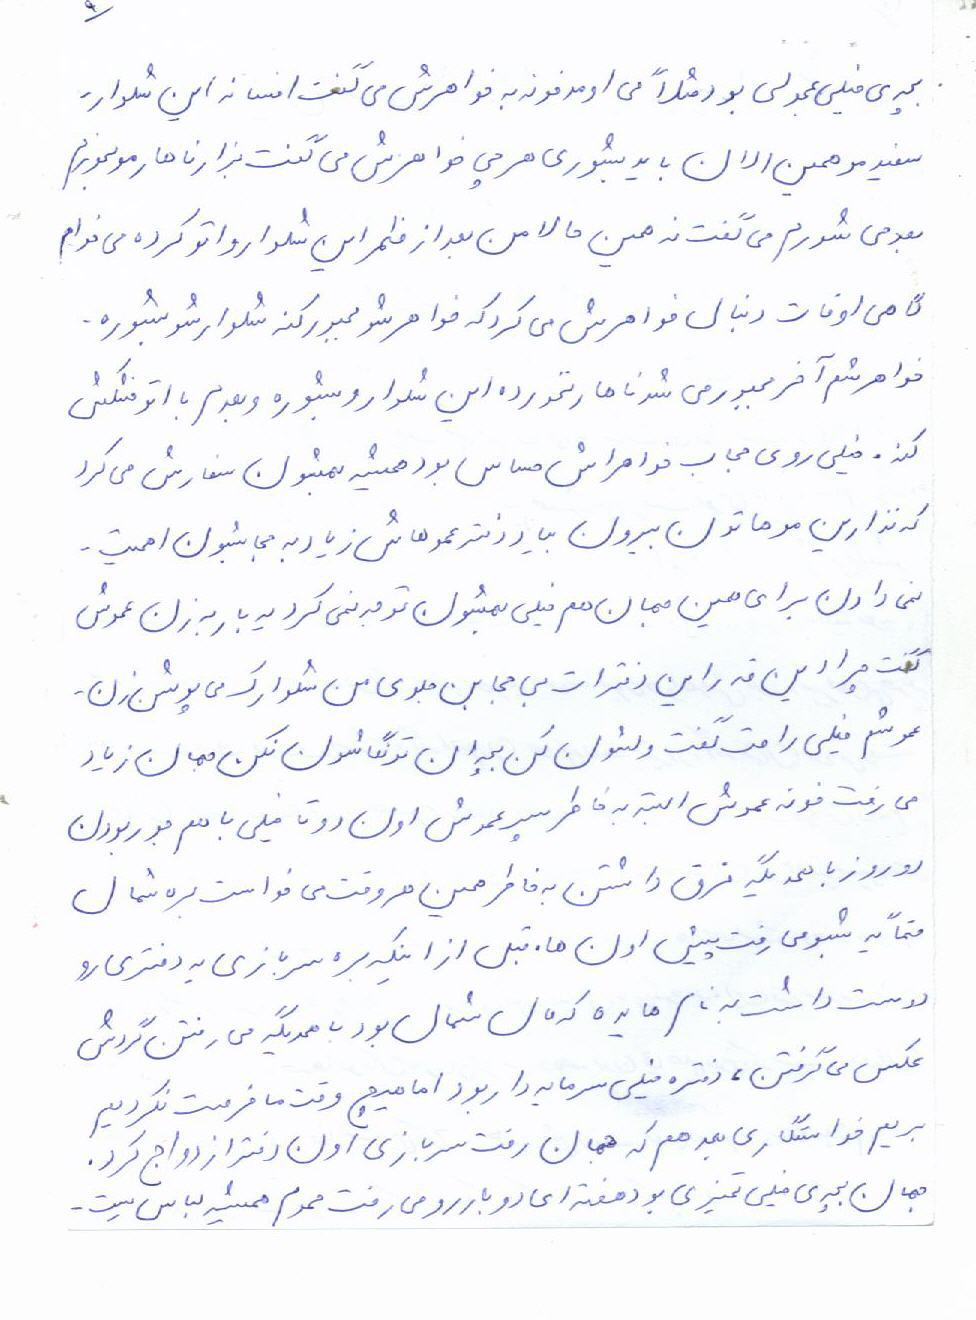 ۹
بچه‌ی خیلی عجولی بود مثلاً می اومد خونه به خواهرش می گفت افسانه این شلوار-
سفید مو همین الان باید بشوری هر چی خواهرش می گفت بزار ناهار مو بخورم
بعد می شورم می گفت نه همین حالا من بعد از ظهر این شلوار رو اتو کرده می خوام
گاهی اوقات دنبال خواهرش می کرد که خواهر شو مجبور کنه شلوار شو بشوره-
خواهرشم آخر مجبور می شد ناهار نخورده این شلوار و بشوره و بعدم با اتو خشکش
کنه. خیلی روی حجاب خواهراش حساس بود همیشه بهشون سفارش می کرد
که نذارین موهاتون بیرون بیاد دختر عموهاش زیاد به حجابشون اهمیت-
نمی دادن برای همین جهان هم خیلی بهشون توجه نمی کرد یه بار به زن عموش
گفت چرا این قدر این دخترات بی حجابن جلوی من شلوارک می پوشن زن-
عموشم خیلی راحت گفت ولشون کن بچه ان تو نگاشون نکن جهان زیاد
می رفت خونه عموش البته به خاطر پسر عموش اون دو تا خیلی با هم جور بودن
دو روز با همدیگه فرق داشتن به خاطر همین هر وقت می خواست بره شمال
حتماً یه شبو می رفت پیش اون ها. قبل از اینکه بره سربازی یه دختری رو
دوست داشت به نام هایده که مال شمال بود با همدیگه می رفتن گردش
عکس می گرفتن، دختره خیلی سرمایه دار بود اما هیچ وقت ما فرصت نکردیم
بریم خواستگاری بعد هم که جهان رفت سربازی اون دختر ازدواج کرد.
جهان بچه‌ی خیلی تمیزی بود هفته ای دو بار رو می رفت حموم همیشه لباس ست-